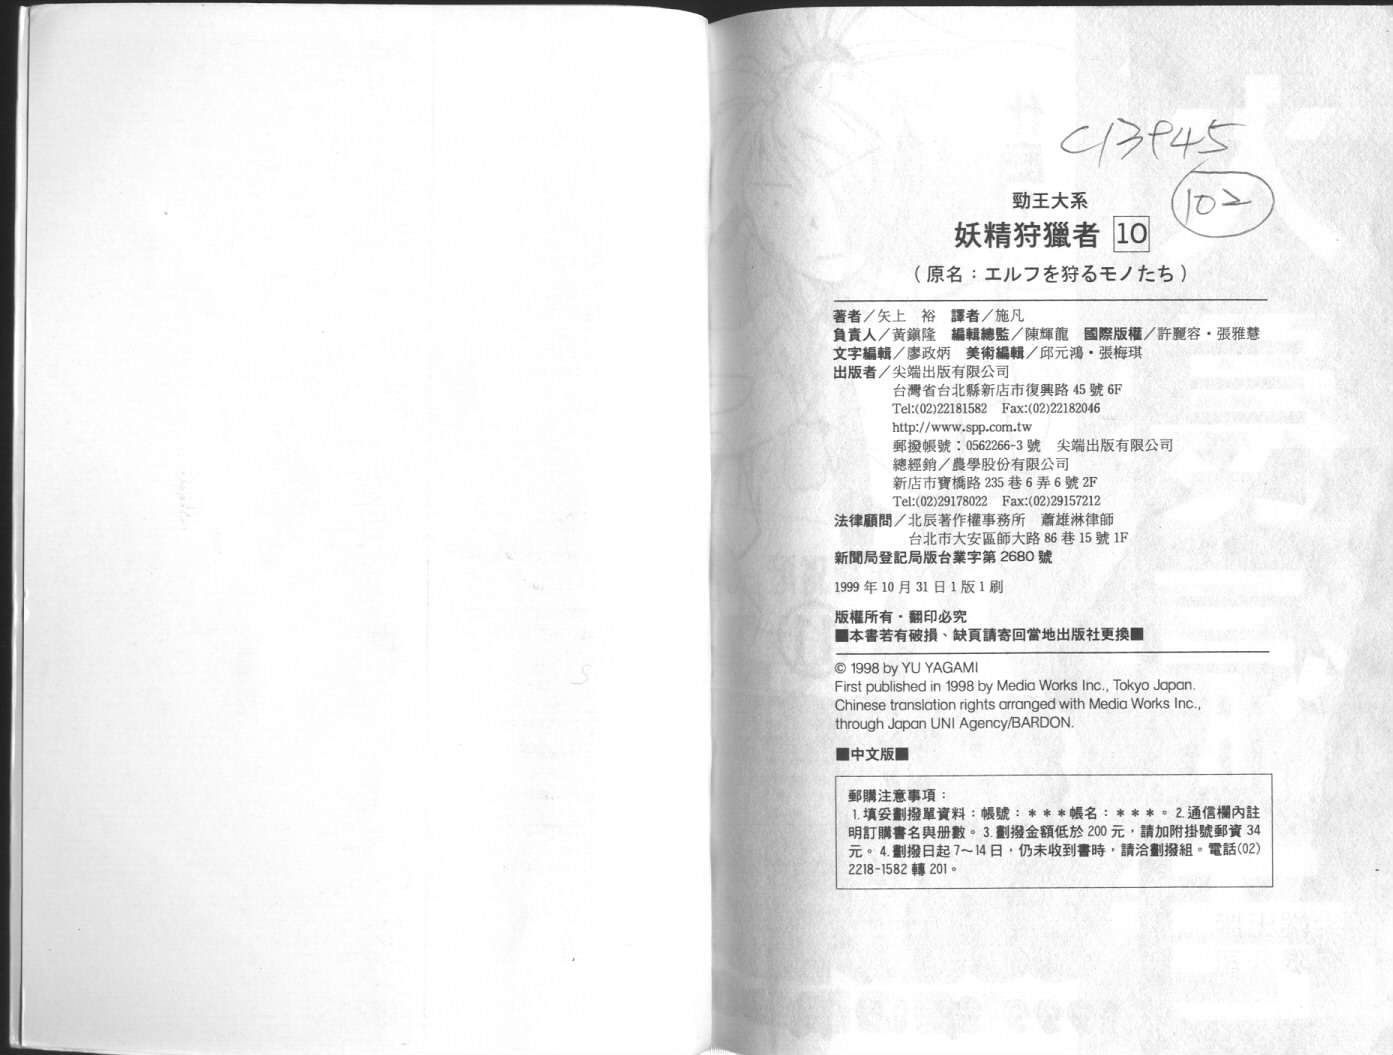 C13945
102
勁王大系
妖精狩獵者 10
（原名：エルフを狩るモノたち）
著者／矢上　裕　譯者／施凡
負責人／黃鎮隆　編輯總監／陳輝龍　國際版權／許麗容・張雅慧
文字編輯／廖政炳　美術編輯／邱元鴻・張梅琪
出版者／尖端出版有限公司
台灣省台北縣新店市復興路 45 號 6F
Tel:(02)22181582　Fax:(02)22182046
http://www.spp.com.tw
郵撥帳號：0562266-3 號　尖端出版有限公司
總經銷／農學股份有限公司
新店市寶橋路 235 巷 6 弄 6 號 2F
Tel:(02)29178022　Fax:(02)29157212
法律顧問／北辰著作權事務所　蕭雄淋律師
台北市大安區師大路 86 巷 15 號 1F
新聞局登記局版台業字第 2680 號
1999 年 10 月 31 日 1 版 1 刷
版權所有・翻印必究
■本書若有破損、缺頁請寄回當地出版社更換■
© 1998 by YU YAGAMI
First published in 1998 by Media Works Inc., Tokyo Japan.
Chinese translation rights arranged with Media Works Inc.,
through Japan UNI Agency/BARDON.
■中文版■
郵購注意事項：
1.填妥劃撥單資料：帳號：＊＊＊帳名：＊＊＊。2.通信欄內註
明訂購書名與册數。3.劃撥金額低於 200 元，請加附掛號郵資 34
元。4.劃撥日起 7～14 日，仍未收到書時，請洽劃撥組。電話(02)
2218-1582 轉 201。